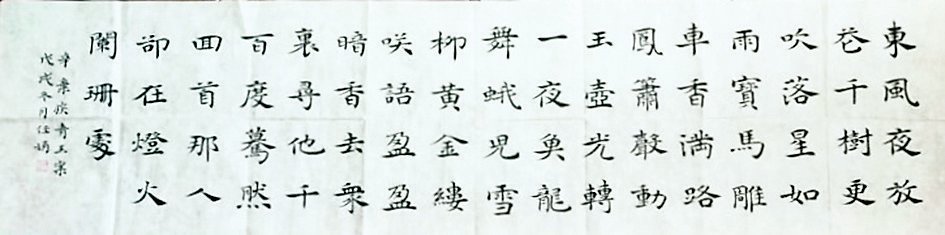 東風夜放
花千樹更
吹落星如
雨寶馬雕
車香満路
鳳簫聲動
玉壺光轉
一夜魚龍
舞蛾兒雪
柳黄金縷
咲語盈盈
暗香去衆
裏尋他千
百度驀然
回首那人
卻在燈火
闌珊處
辛棄疾青玉案
戊戌冬月任